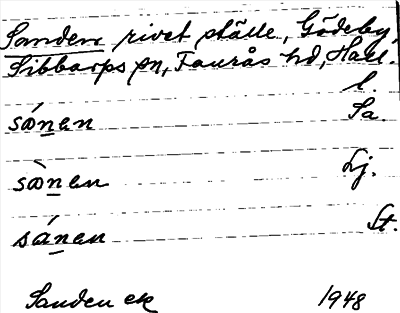 Sanden rivet ställe, Gödeby,
Sibbarps sn, Faurås hd, Hall.
l.
sánan Sa.
sànan Lj.
sánan St.
Sanden ek 1948